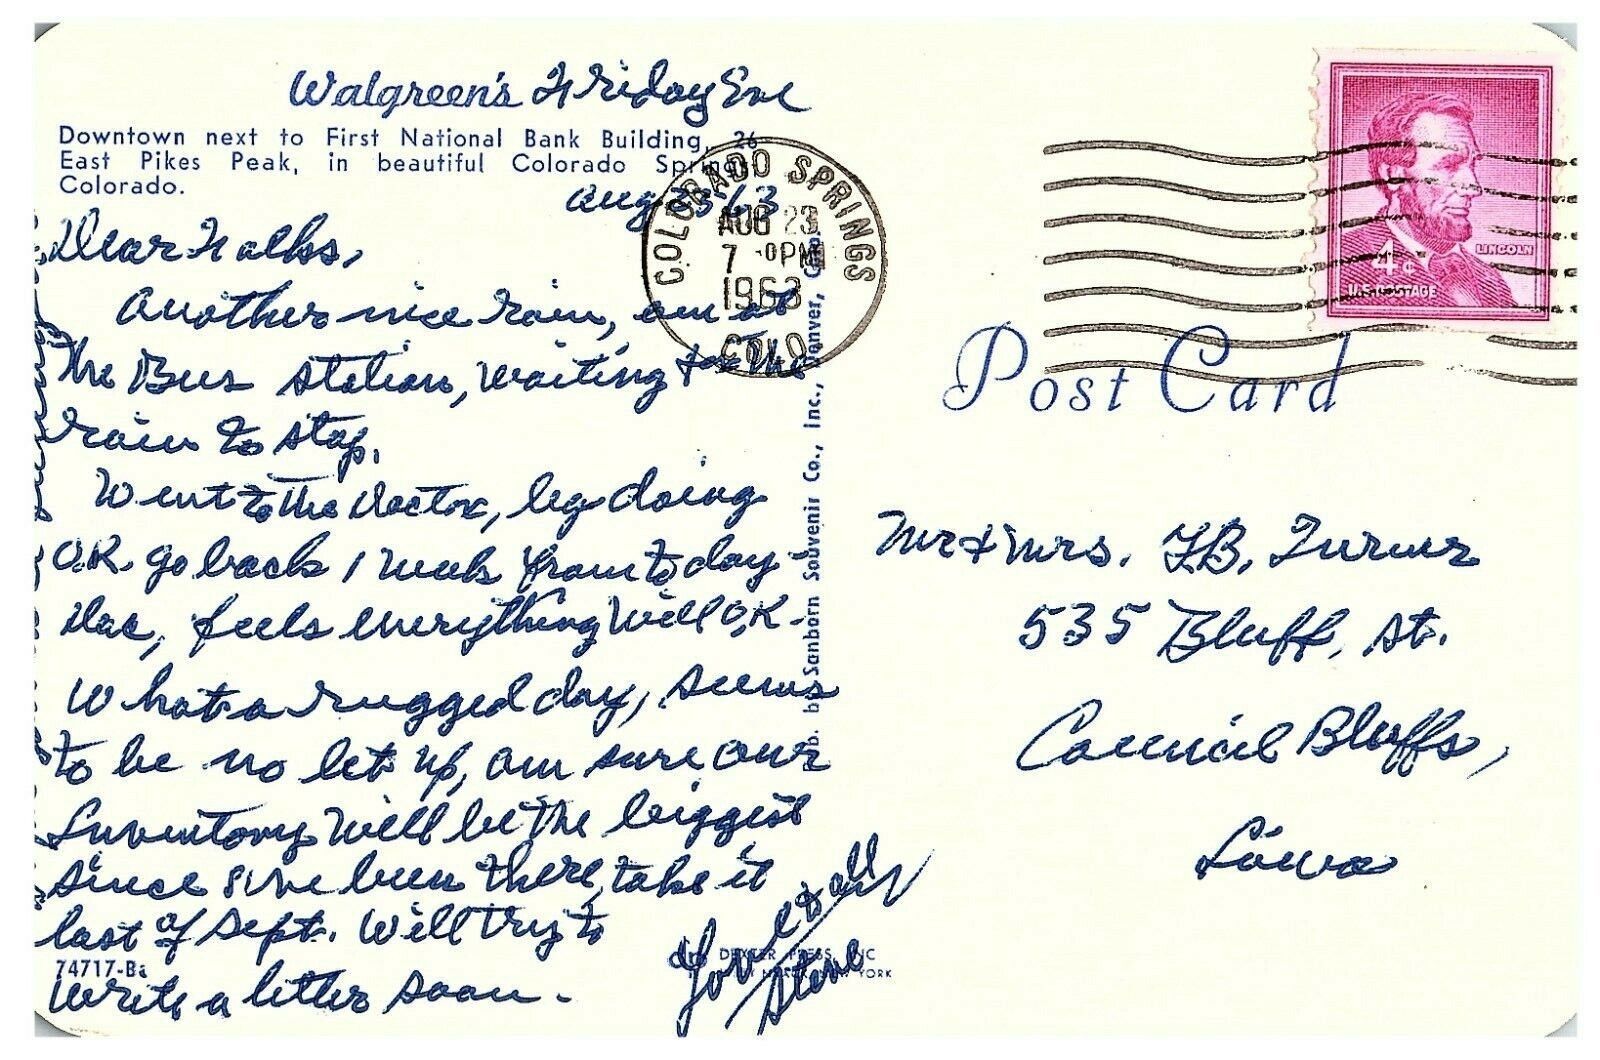 Walgreen's Friday Eve
Downtown next to First National Bank Building, 26
East Pikes Peak, in beautiful Colorado Springs,
Colorado.
Aug 23-63
Dear Folks,
Another nice rain, am at
the Bus station, waiting for the
rain to stop.
Went to the Doctor, leg doing
O.K. go back 1 week from today
Doc, feels everything will O.K.
What a rugged day, seems
to be no let up, am sure our
Inventory will be the biggest
since I've been there, take it
last of Sept. Will try to
write a letter soon.
Love to all
Steve
74717-B
DEXTER PRESS, INC
NEW YORK
Pub. by Sanborn Souvenir Co., Inc., Denver, Colo.
COLORADO SPRINGS
AUG 23
7 PM
1963
COLO.
LINCOLN
4¢
U.S. POSTAGE
Post Card
Mr & Mrs. F.B. Turner
535 Bluff, St.
Council Bluffs,
Iowa